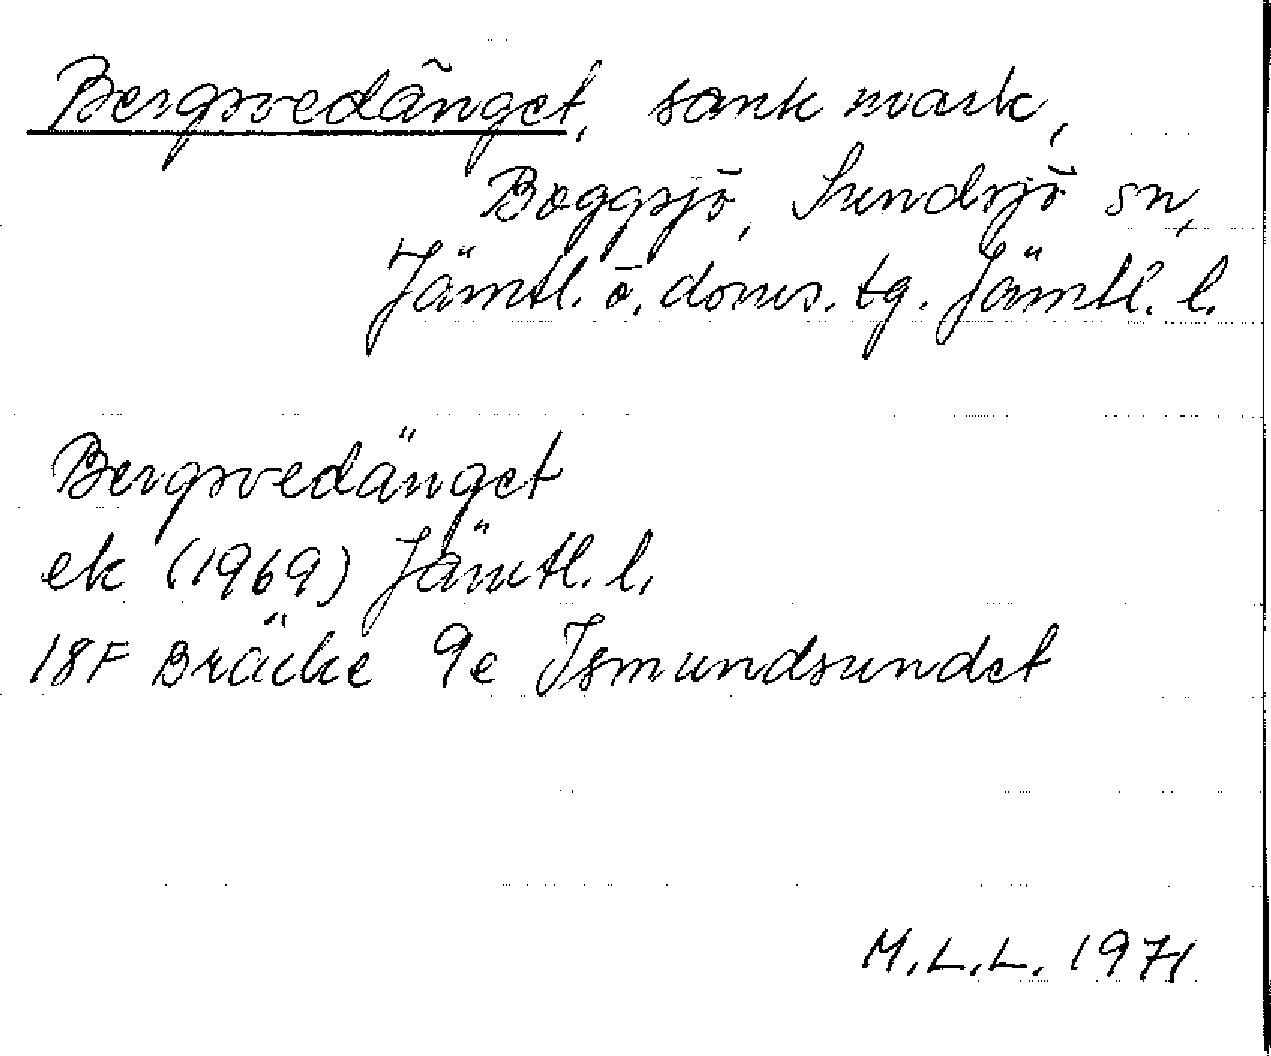 Bergsvedänget, sank mark,
Boggsjö, Sundsjö sn,
Jämtl. ö. doms. tg. Jämtl. l.
Bergsvedänget
ek (1969) Jämtl. l.
18F Bräcke 9e Ismundsundet
M.L.L. 1971